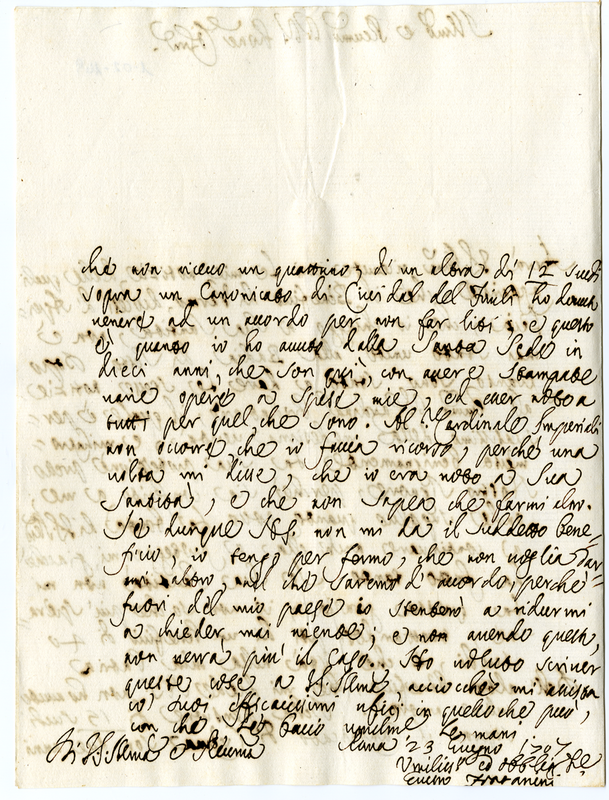 che non ricevo un quattrino; d'un altra di 12 scudi
sopra un Canonicato di Cividal del Friuli ho dovuto
venire ad un accordo per non far liti; e questo
è quanto io ho avuto dalla Santa Sede in
dieci anni, che son quì, con avere stampate
varie opere a spese mie, ed esser noto a
tutti per quel che sono. Al Sr. Cardinale Imperiali
non occorre che io faccia ricorso, perche una
volta mi disse, che io era noto à Sua
Santità, e che non sapea che farmi altro.
Se dunque NS. non mi da il suddetto bene-
ficio, io tengo per fermo, che non voglia dar-
mi altro, nel che saremo d'accordo, perche
fuori del mio paese io stenterò a ridurmi
a chieder mai niente; e non avendo questo,
non verrà più il caso. Ho voluto scriver
queste cose a VS Illma, acciocchè mi assista
co' suoi efficacissimi ufici in quello che può,
con che le bacio umilme le mani.
Di VS. Illma e Rma Roma 23 Giugno 1707
Umiliss. ed obblig. Se
Giusto Fontanini